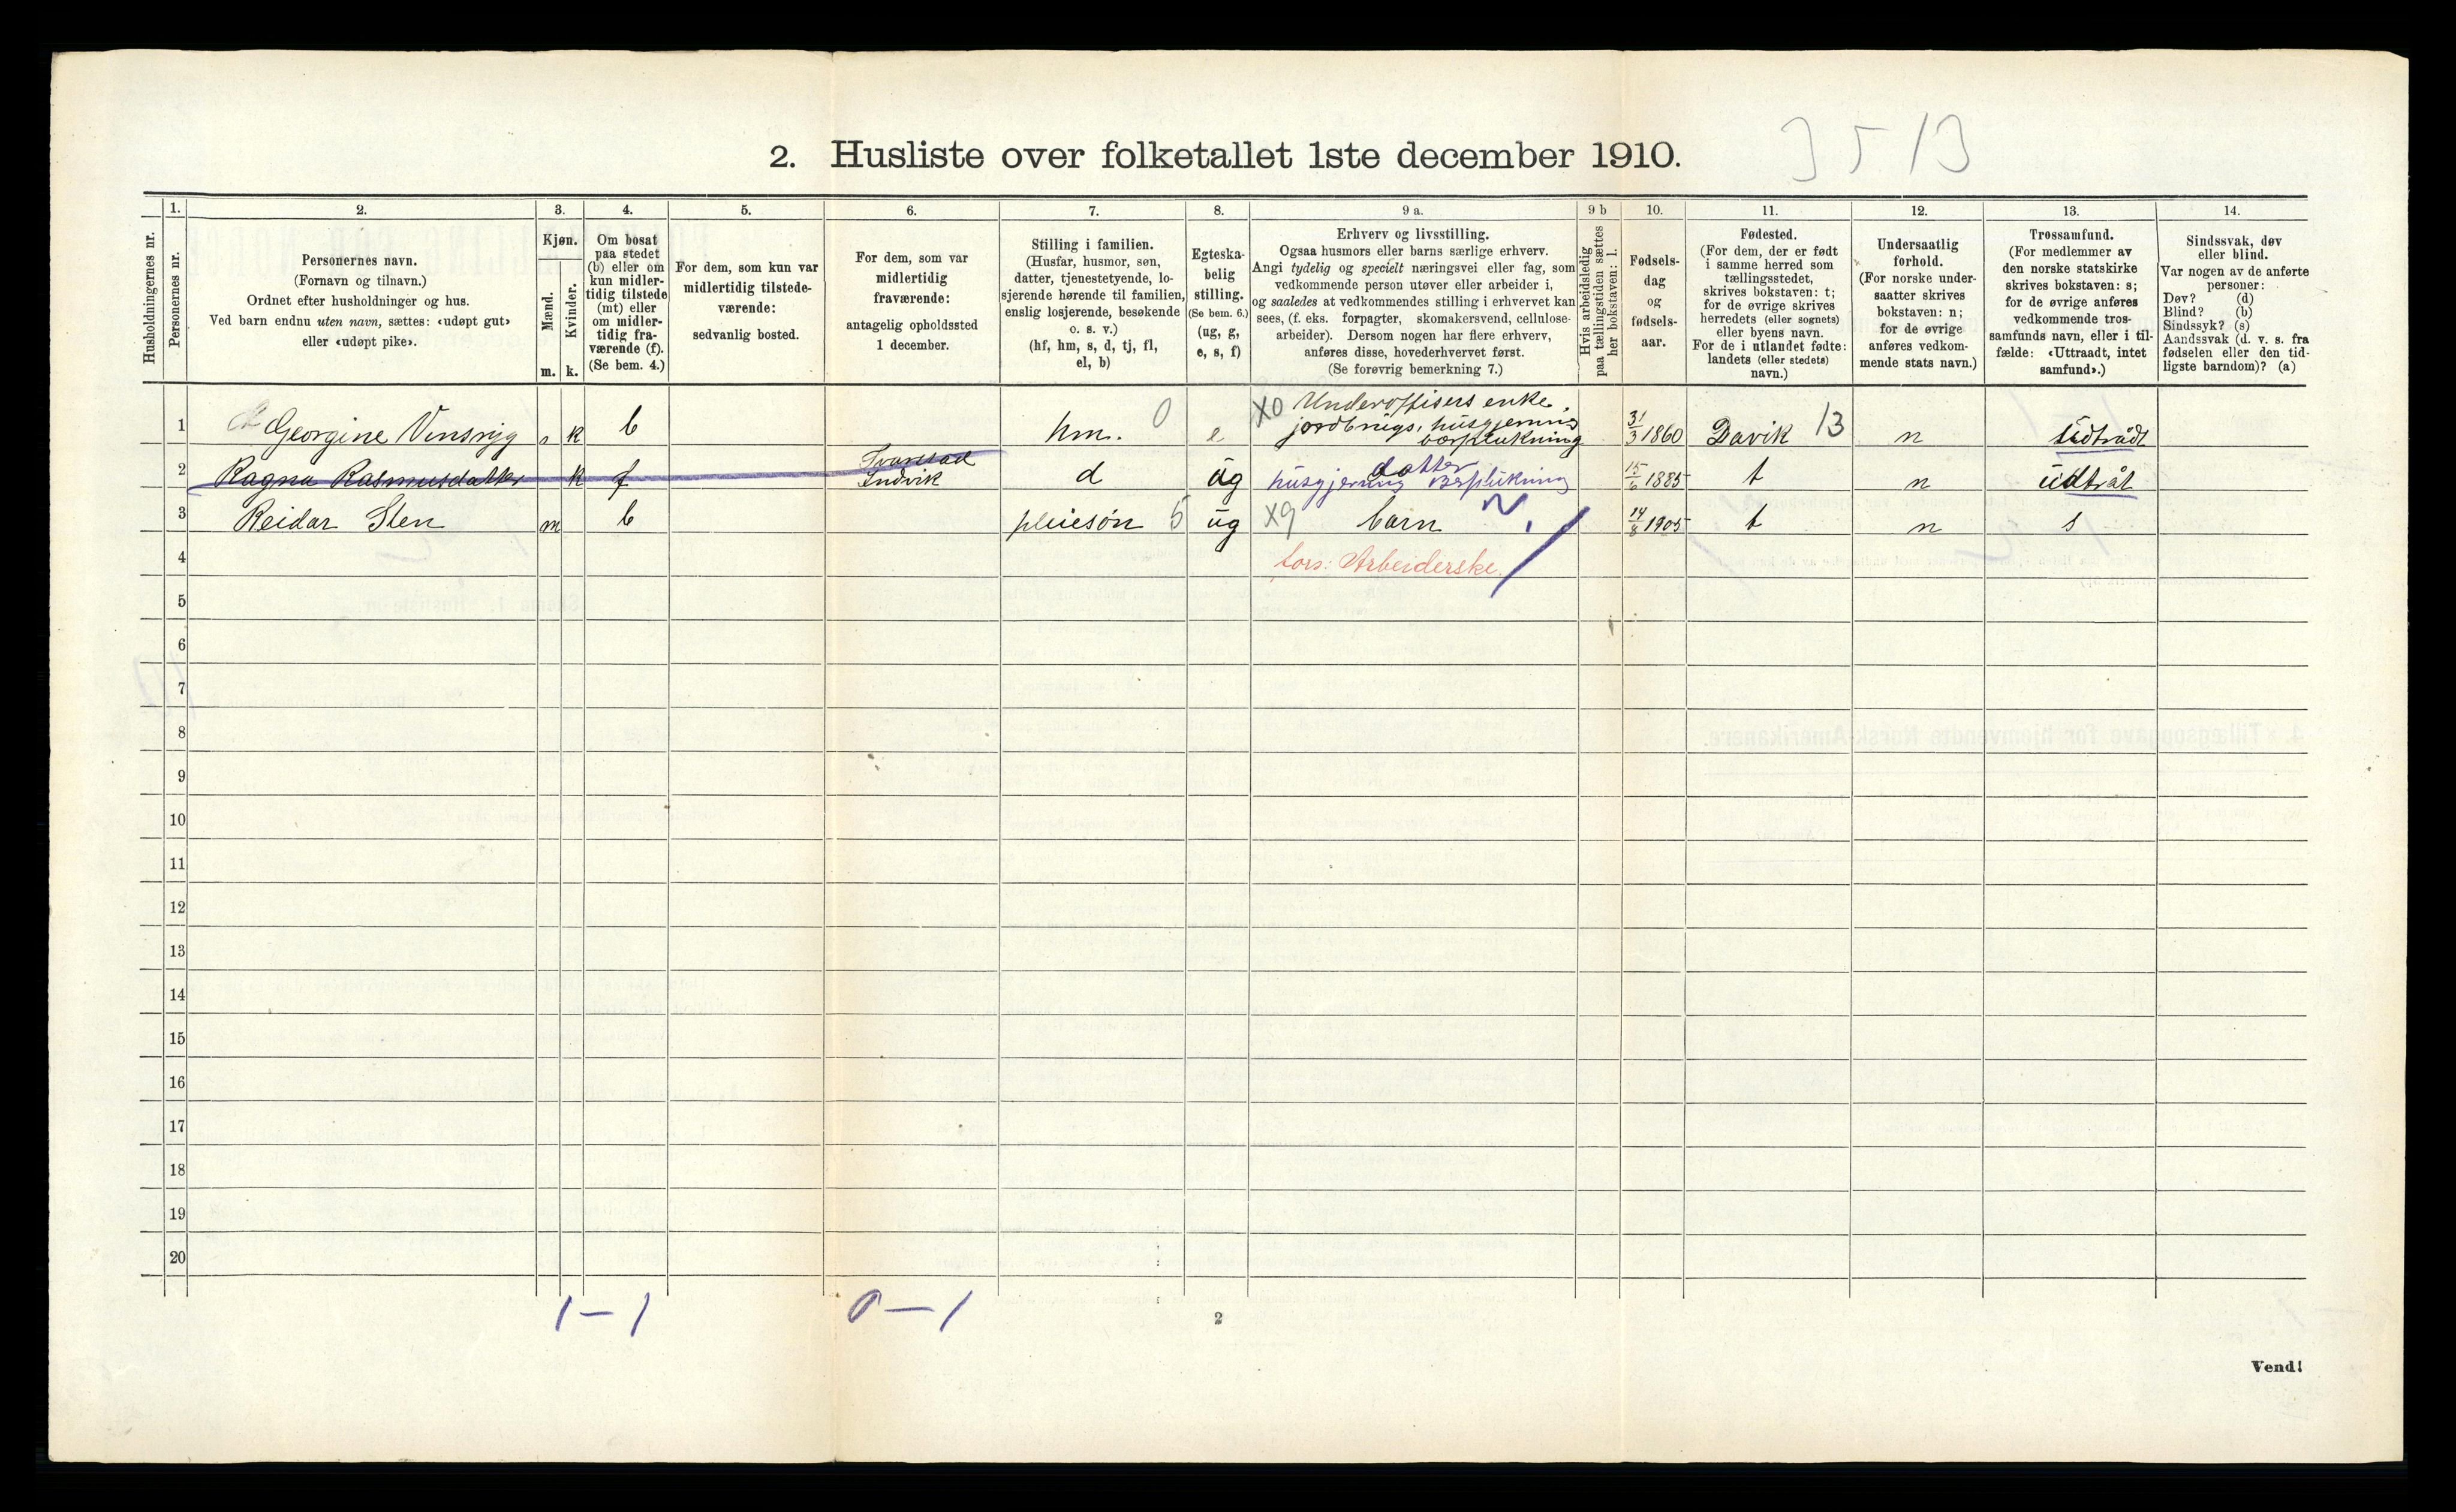 2. Husliste over folketallet 1ste december 1910.
3513
Husholdningernes nr.
1.
Personernes nr.
2.
Personernes navn.
(Fornavn og tilnavn.)
Ordnet efter husholdninger og hus.
Ved barn endnu uten navn, sættes: «udøpt gut»
eller «udøpt pike».
3.
Kjøn.
Mænd.
Kvinder.
m. k.
4.
Om bosat
paa stedet
(b) eller om
kun midler-
tidig tilstede
(mt) eller
om midler-
tidig fra-
værende (f).
(Se bem. 4.)
5.
For dem, som kun var
midlertidig tilstede-
værende:
sedvanlig bosted.
6.
For dem, som var
midlertidig
fraværende:
antagelig opholdssted
1 december.
7.
Stilling i familien.
(Husfar, husmor, søn,
datter, tjenestetyende, lo-
sjerende hørende til familien,
enslig losjerende, besøkende
o. s. v.)
(hf, hm, s, d, tj, fl,
el, b)
8.
Egteska-
belig
stilling.
(Se bem. 6.)
(ug, g,
e, s, f)
9 a.
Erhverv og livsstilling.
Ogsaa husmors eller barns særlige erhverv.
Angi tydelig og specielt næringsvei eller fag, som
vedkommende person utøver eller arbeider i,
og saaledes at vedkommendes stilling i erhvervet kan
sees, (f. eks. forpagter, skomakersvend, cellulose-
arbeider). Dersom nogen har flere erhverv,
anføres disse, hovederhvervet først.
(Se forøvrig bemerkning 7.)
9 b
Hvis arbeidsledig
paa tællingstiden sættes
her bokstaven: l.
10.
Fødsels-
dag
og
fødsels-
aar.
11.
Fødested.
(For dem, der er født
i samme herred som
tællingsstedet,
skrives bokstaven: t;
for de øvrige skrives
herredets (eller sognets)
eller byens navn.
For de i utlandet fødte:
landets (eller stedets)
navn.)
12.
Undersaatlig
forhold.
(For norske under-
saatter skrives
bokstaven: n;
for de øvrige
anføres vedkom-
mende stats navn.)
13.
Trossamfund.
(For medlemmer av
den norske statskirke
skrives bokstaven: s;
for de øvrige anføres
vedkommende tros-
samfunds navn, eller i til-
fælde: «Uttraadt, intet
samfund».)
14.
Sindssvak, døv
eller blind.
Var nogen av de anførte
personer:
Døv? (d)
Blind? (b)
Sindssyk? (s)
Aandssvak (d. v. s. fra
fødselen eller den tid-
ligste barndom)? (a)
1 Georgine Vinsryg k b hm. 0 e X0 Underoffisers enke,
jordbrugs, husgjerning
bærplukning 31/3 1860 Davik 13 n udtrådt
2 Ragna Rasmusdatter k f Indvik d ug datter
husgjerning Bærplukning 15/6 1885 t n udtråt
3 Reidar Sten m b pleiesøn 5 ug X9 barn 14/8 1905 t n s
4 fors: Arbeiderske
5
6
7
8
9
10
11
12
13
14
15
16
17
18
19
20
1 – 1
0 – 1
2
Vend!